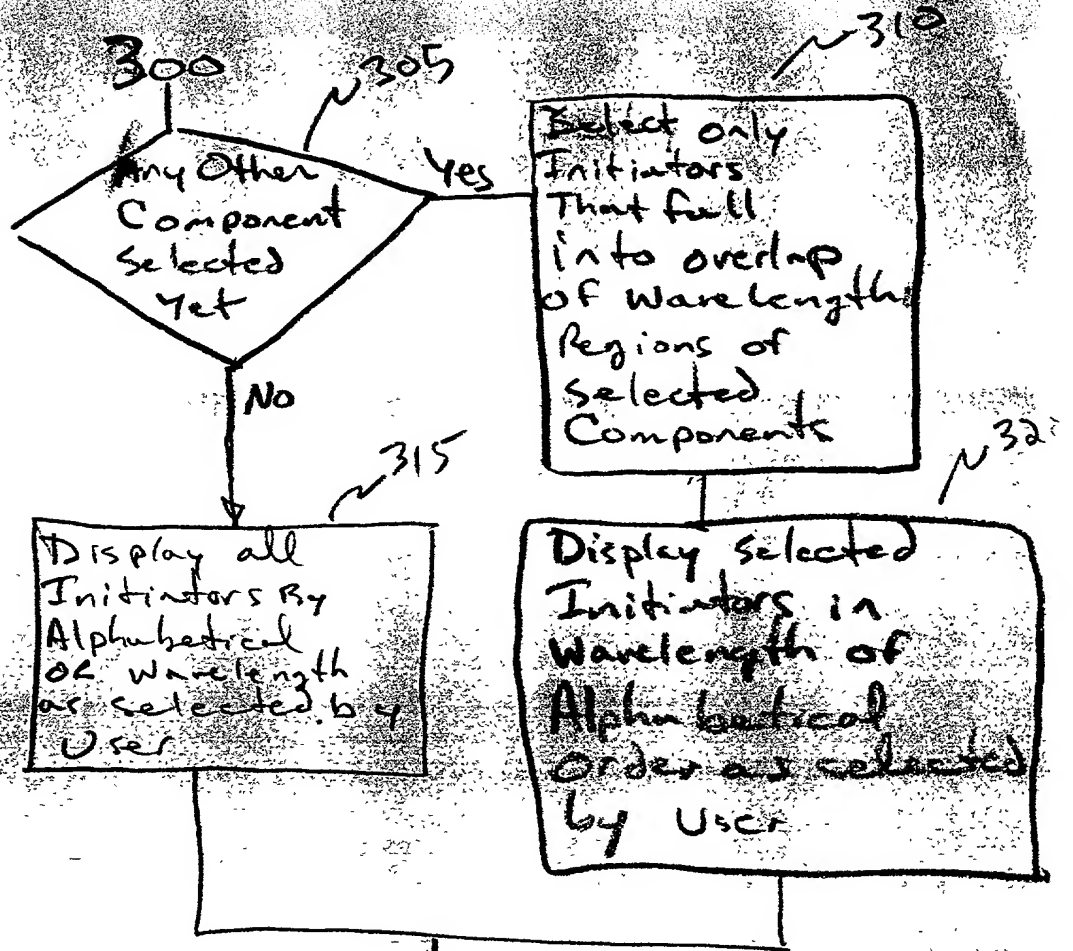 300
305
310
Any Other
Component
Selected
Yet
Yes
No
Select only
Initiators
That fall
into overlap
of Wavelength
Regions of
Selected
Components
315
Display all
Initiators By
Alphabetical
or wavelength
as selected by
User
32
Display Selected
Initiators in
Wavelength of
Alphabetical
Order as selected
by User